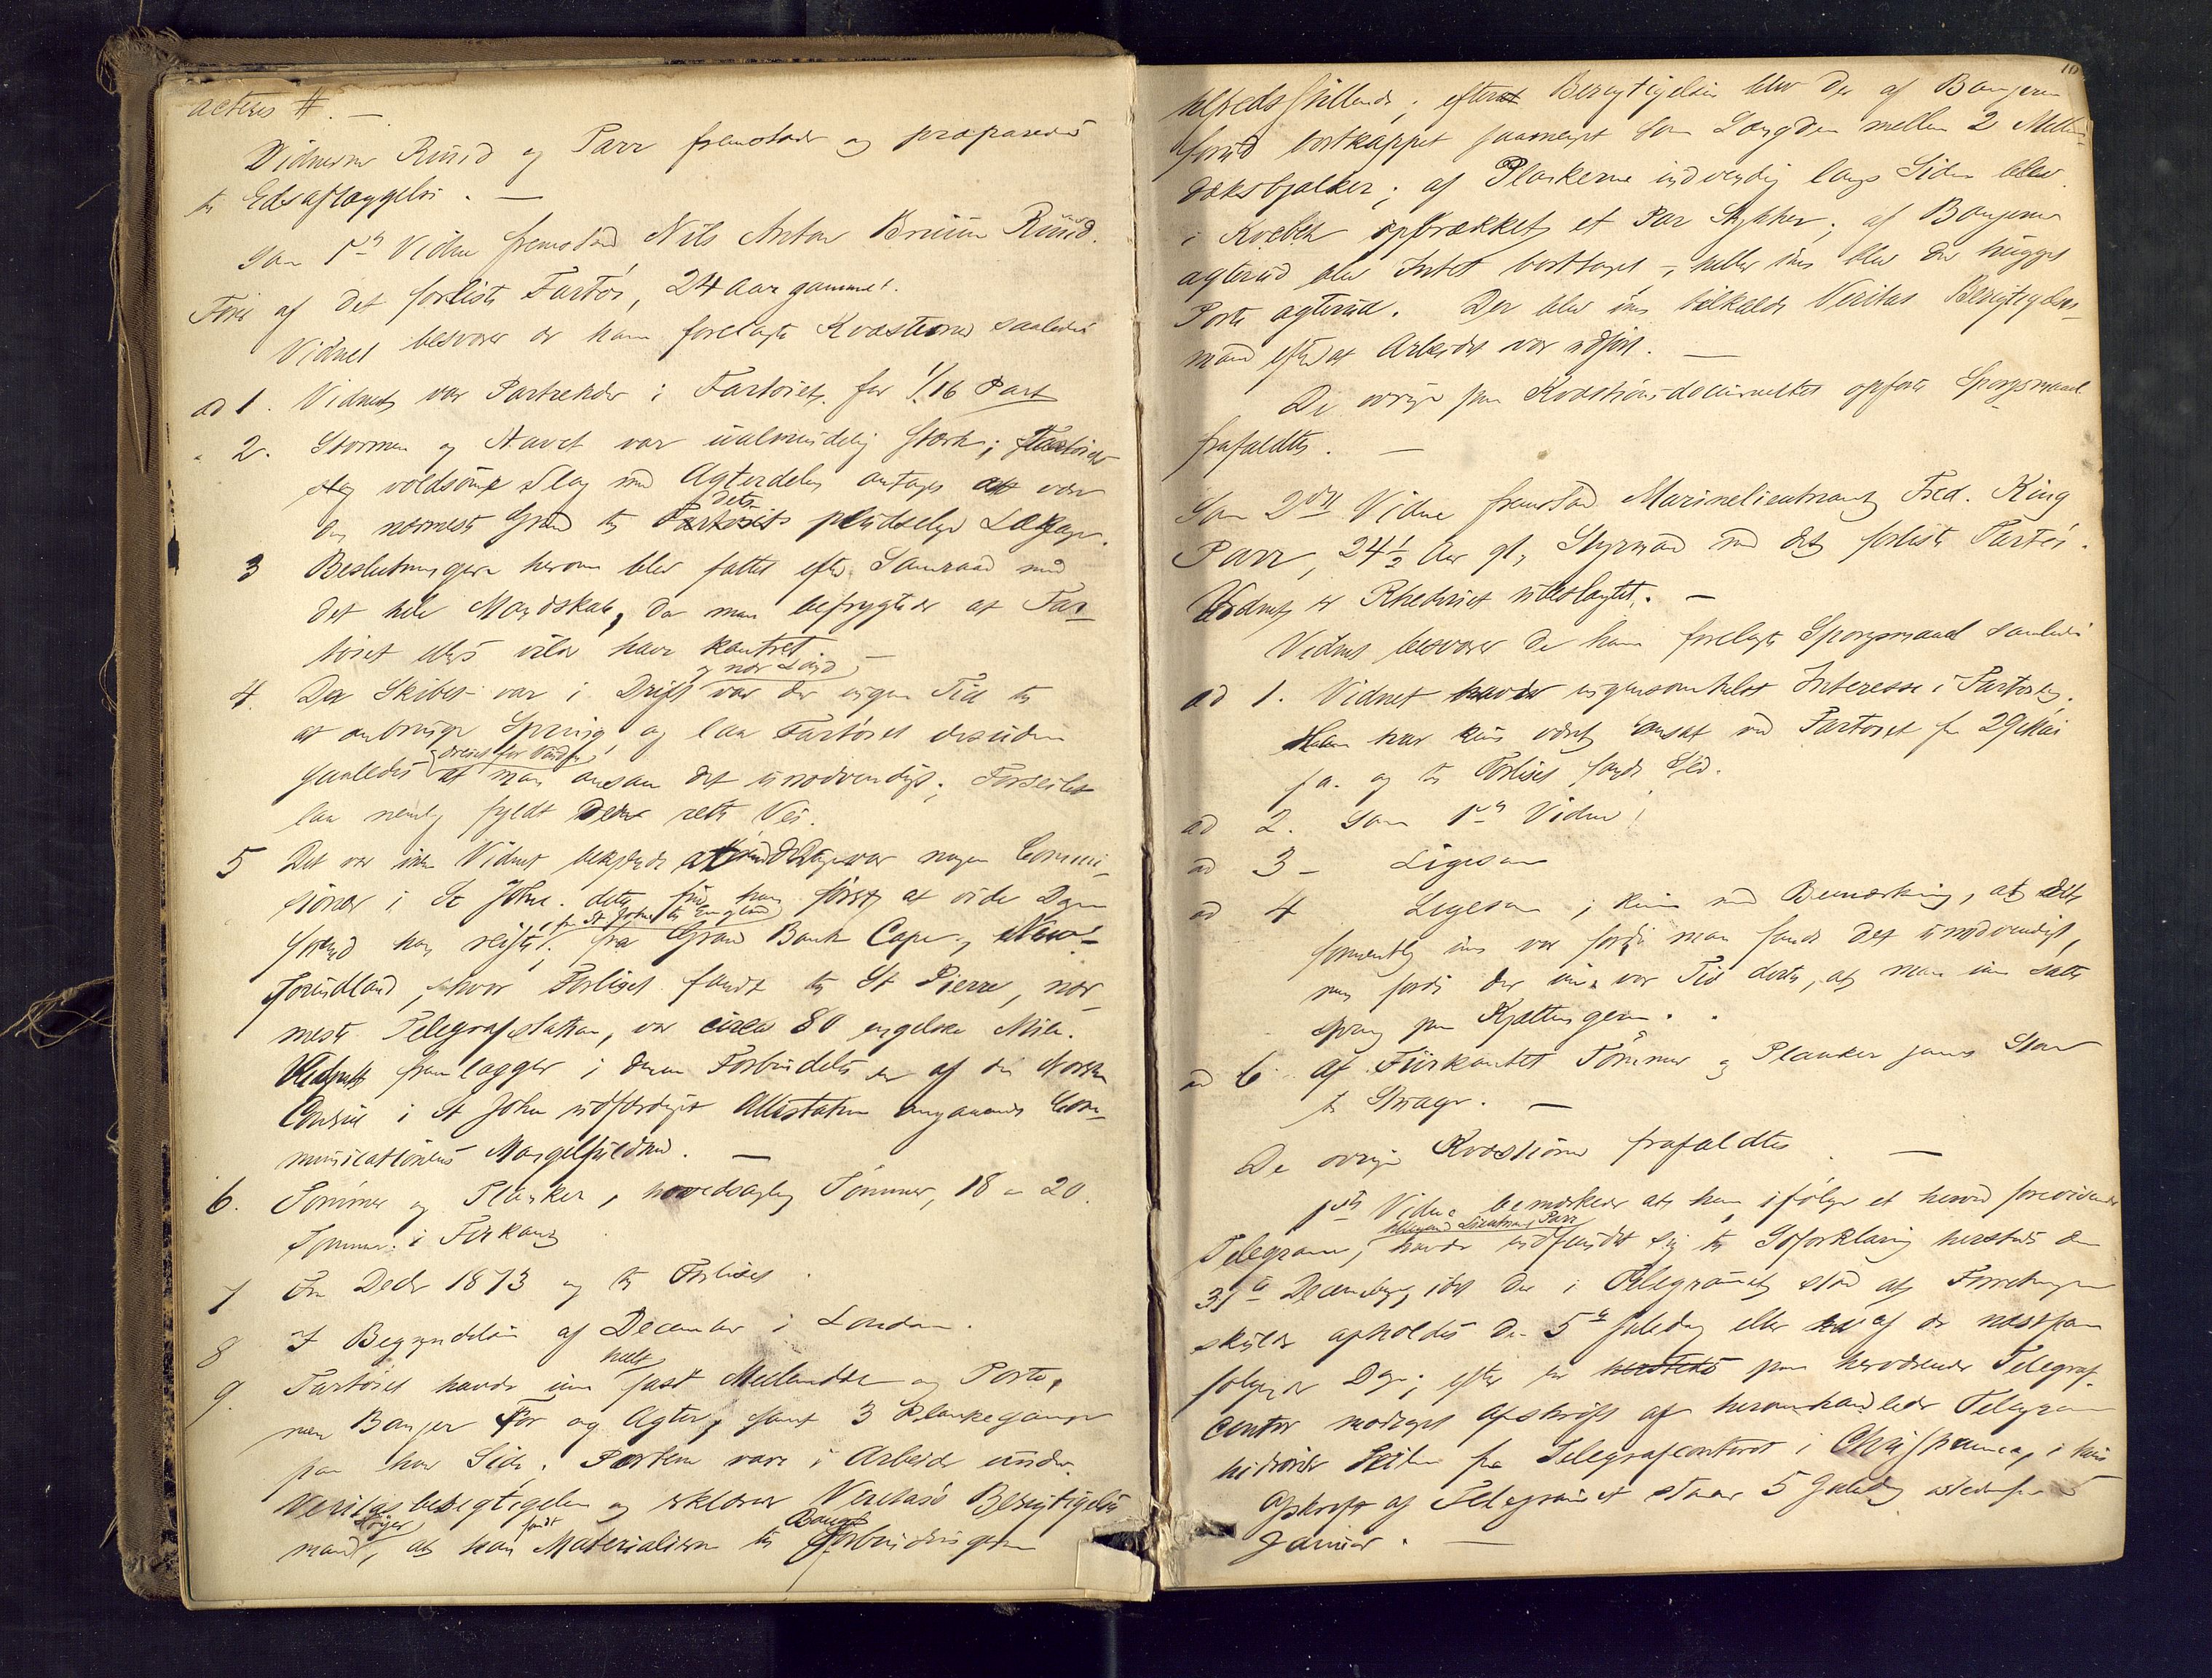 acteres #. —
Vidnerne Ruud og Parr fremstode og præpareredes
til Edsaflæggelse. —
Som 1ste Vidne fremstod Nils Anton Bruun Ruud.
Fører af det forliste Fartøi, 24 Aar gammel.
Vidnet besvarer de ham forelagte Kvæstioner saaledes
ad 1. Vidnet var Partreder i Fartøiet for 1/16 Part
" 2. Stormen og Havet var ualmindelig stærk; Fartøiets
voldsomme Slag med Agterdelen antages at være
den nærmeste Grund til Fartøiets dets pludselige Lækage.
3 Beslutningen herom blev fattet efter Samraad med
det hele Mandskab, da man befrygtede at Far-
tøiet ellers vilde have kantret
4. Da Skibet var i Drift og nær Land var der ingen Tid til
at anbringe Spring og laa Fartøiet desuden
saaledes at man ansaa det unødvendigt; Forseilet
laa nemlig fyldt den rette Vei.
5 Det var ikke Vidnet bekjendt at der var nogen Commi-
sionær i St John. dette fik han først at vide Dagen
forend han reiste fra St John til England; fra Grand Bank Cape, New-
foundland, hvor Forliset fandt til St Pierre, nær-
meste Telegrafstation, var circa 80 engelske Mile.
Vidnet fremlægger i denne Forbindelse en af den norske
Consul i St John udfærdiget Attestation angaaende Com-
municationens Mangelfuldhed. —
6. Tømmer og Planker, hovedsagelig Tømmer, 18 a 20
Tommer i Firkant
7 Fra Decbr 1873 og til Forliset.
8 I Begyndelsen af December i London.
9. Fartøiet havde ikke helt fast Mellemdæk og Porte,
men Banjer For og Agter, samt 3 Plankegange
paa hver Side. Portene vare i Arbeide under
Veritas besigtigelse og erklærer Veritas's Besigtigelses
mand, at han fandt Materialierne til Forbindingerne
tilfredsstillende; efter Besigtigelsen blev der af Banjeren
forud bortkappet saameget som Længden mellem 2 Mellem-
dæksbjelker; af Plankerne indvendig langs Siden blev
i Kvebek opbrækket et Par Stykker; af Banjerne
agterud blev Intet borttaget —, heller ikke blev der hugget
Porte agterud. Der blev ikke tilkaldt Veritas Besigtigelses-
mand efter at Arbeidet var udført. —
De øvrige paa Kvæstionsdocumentet opførte Spørgsmaal
frafaldtes. —
Som 2det Vidne fremstod Marinelieutnant Fred. King
Parr, 24½ Aar gl, Styrmand med det forliste Fartøi.
Vidnet er Rhederiet ubeslægtet. —
Vidnet besvarer de ham forelagte Spørgsmaal saaledes
ad 1. Vidnet havde ingensomhelst Interesse i Fartøiet.
Han har kun været ansat ved Fartøiet fra 29 Mai
f. a. og til Forliset fandt Sted.
ad 2. Som 1ste Vidne!
ad 3 — Ligesom
ad 4 Ligesom; kun med Bemærkning, at dette
fornemlig ikke var fordi man fandt det unødvendigt,
men fordi der ikke var Tid dertil, at man ikke satte
spring paa Kjættingen. .
ad 6 Af Fiirkantet Tømmer og Planker samt Stav
til Stuvage. —
De øvrige Kvæstioner frafaldtes. —
1ste Vidne bemærkede at han ifølge et herved forevisende
Telegram, tilligemed Lieutnant Parr havde indfundet sig til Søforklaring herstedes den
31te December, idet der i Telegrammet stod at Forretningen
skulde afholdes den 5te Juledag eller en af de næstpaa
følgende Dage; efter en herstedes paa herværende Telegraf-
contor modtaget Afskrift af heromhandlede Telegram
hidrører Feilen fra Telegrafcontoret i Christiania, i hvis
Afskrift af Telegrammet staar 5 Juledag istedetfor 5
Januar. —